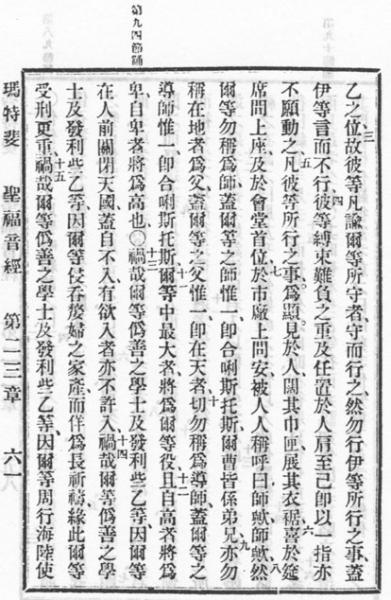 第九四節誦
乙之位故彼等凡諭爾等所守者守而行之然勿行伊等所行之事蓋
伊等言而不行彼等縛束難負之重及任置於人肩至己卽以一指亦
不願動之凡彼等所行之事爲顯見於人闊其巾匣展其衣裾喜於筵
席間上座及於會堂首位於市廠上問安被人人稱呼曰師歟師歟然
爾等勿稱爲師蓋爾等之師惟一卽合唎斯托斯爾曹皆係弟兄亦勿
稱在地者爲父蓋爾等之父惟一卽在天者切勿稱爲導師蓋爾等之
導師惟一卽合唎斯托斯爾等中最大者將爲爾等役且自高者將爲
卑自卑者將爲高也〇禍哉爾等僞善之學士及發利些乙等因爾等
在人前關閉天國蓋自不入有欲入者亦不許入禍哉爾等僞善之學
士及發利些乙等因爾等侵呑嫠婦之家產而佯爲長祈禱緣此爾等
受刑更重禍哉爾等僞善之學士及發利些乙等因爾等周行海陸使
瑪特斐 聖福音經 第二三章 六一